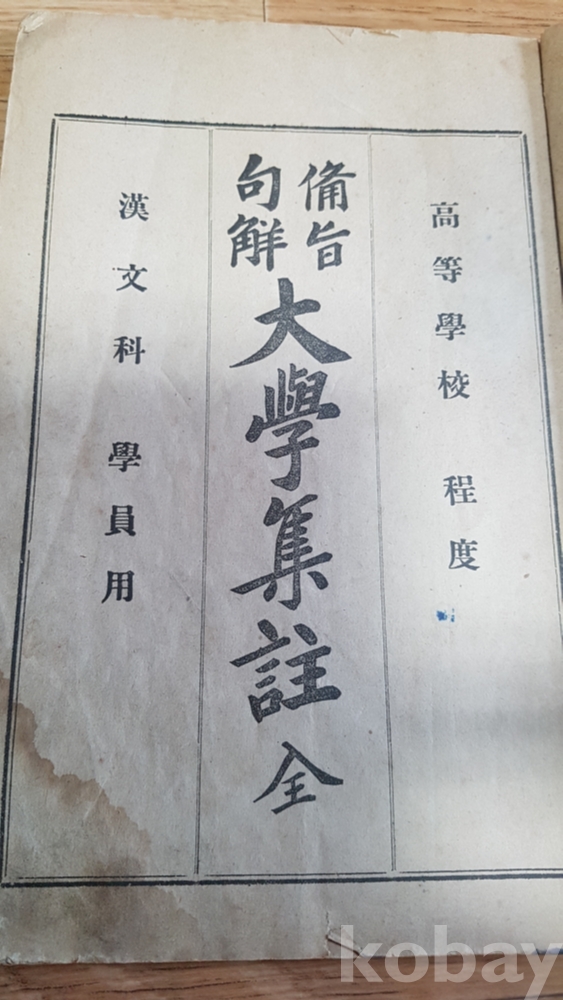 高等學校 程度
備旨
句解
大學集註 全
漢文科 學員用
kobay